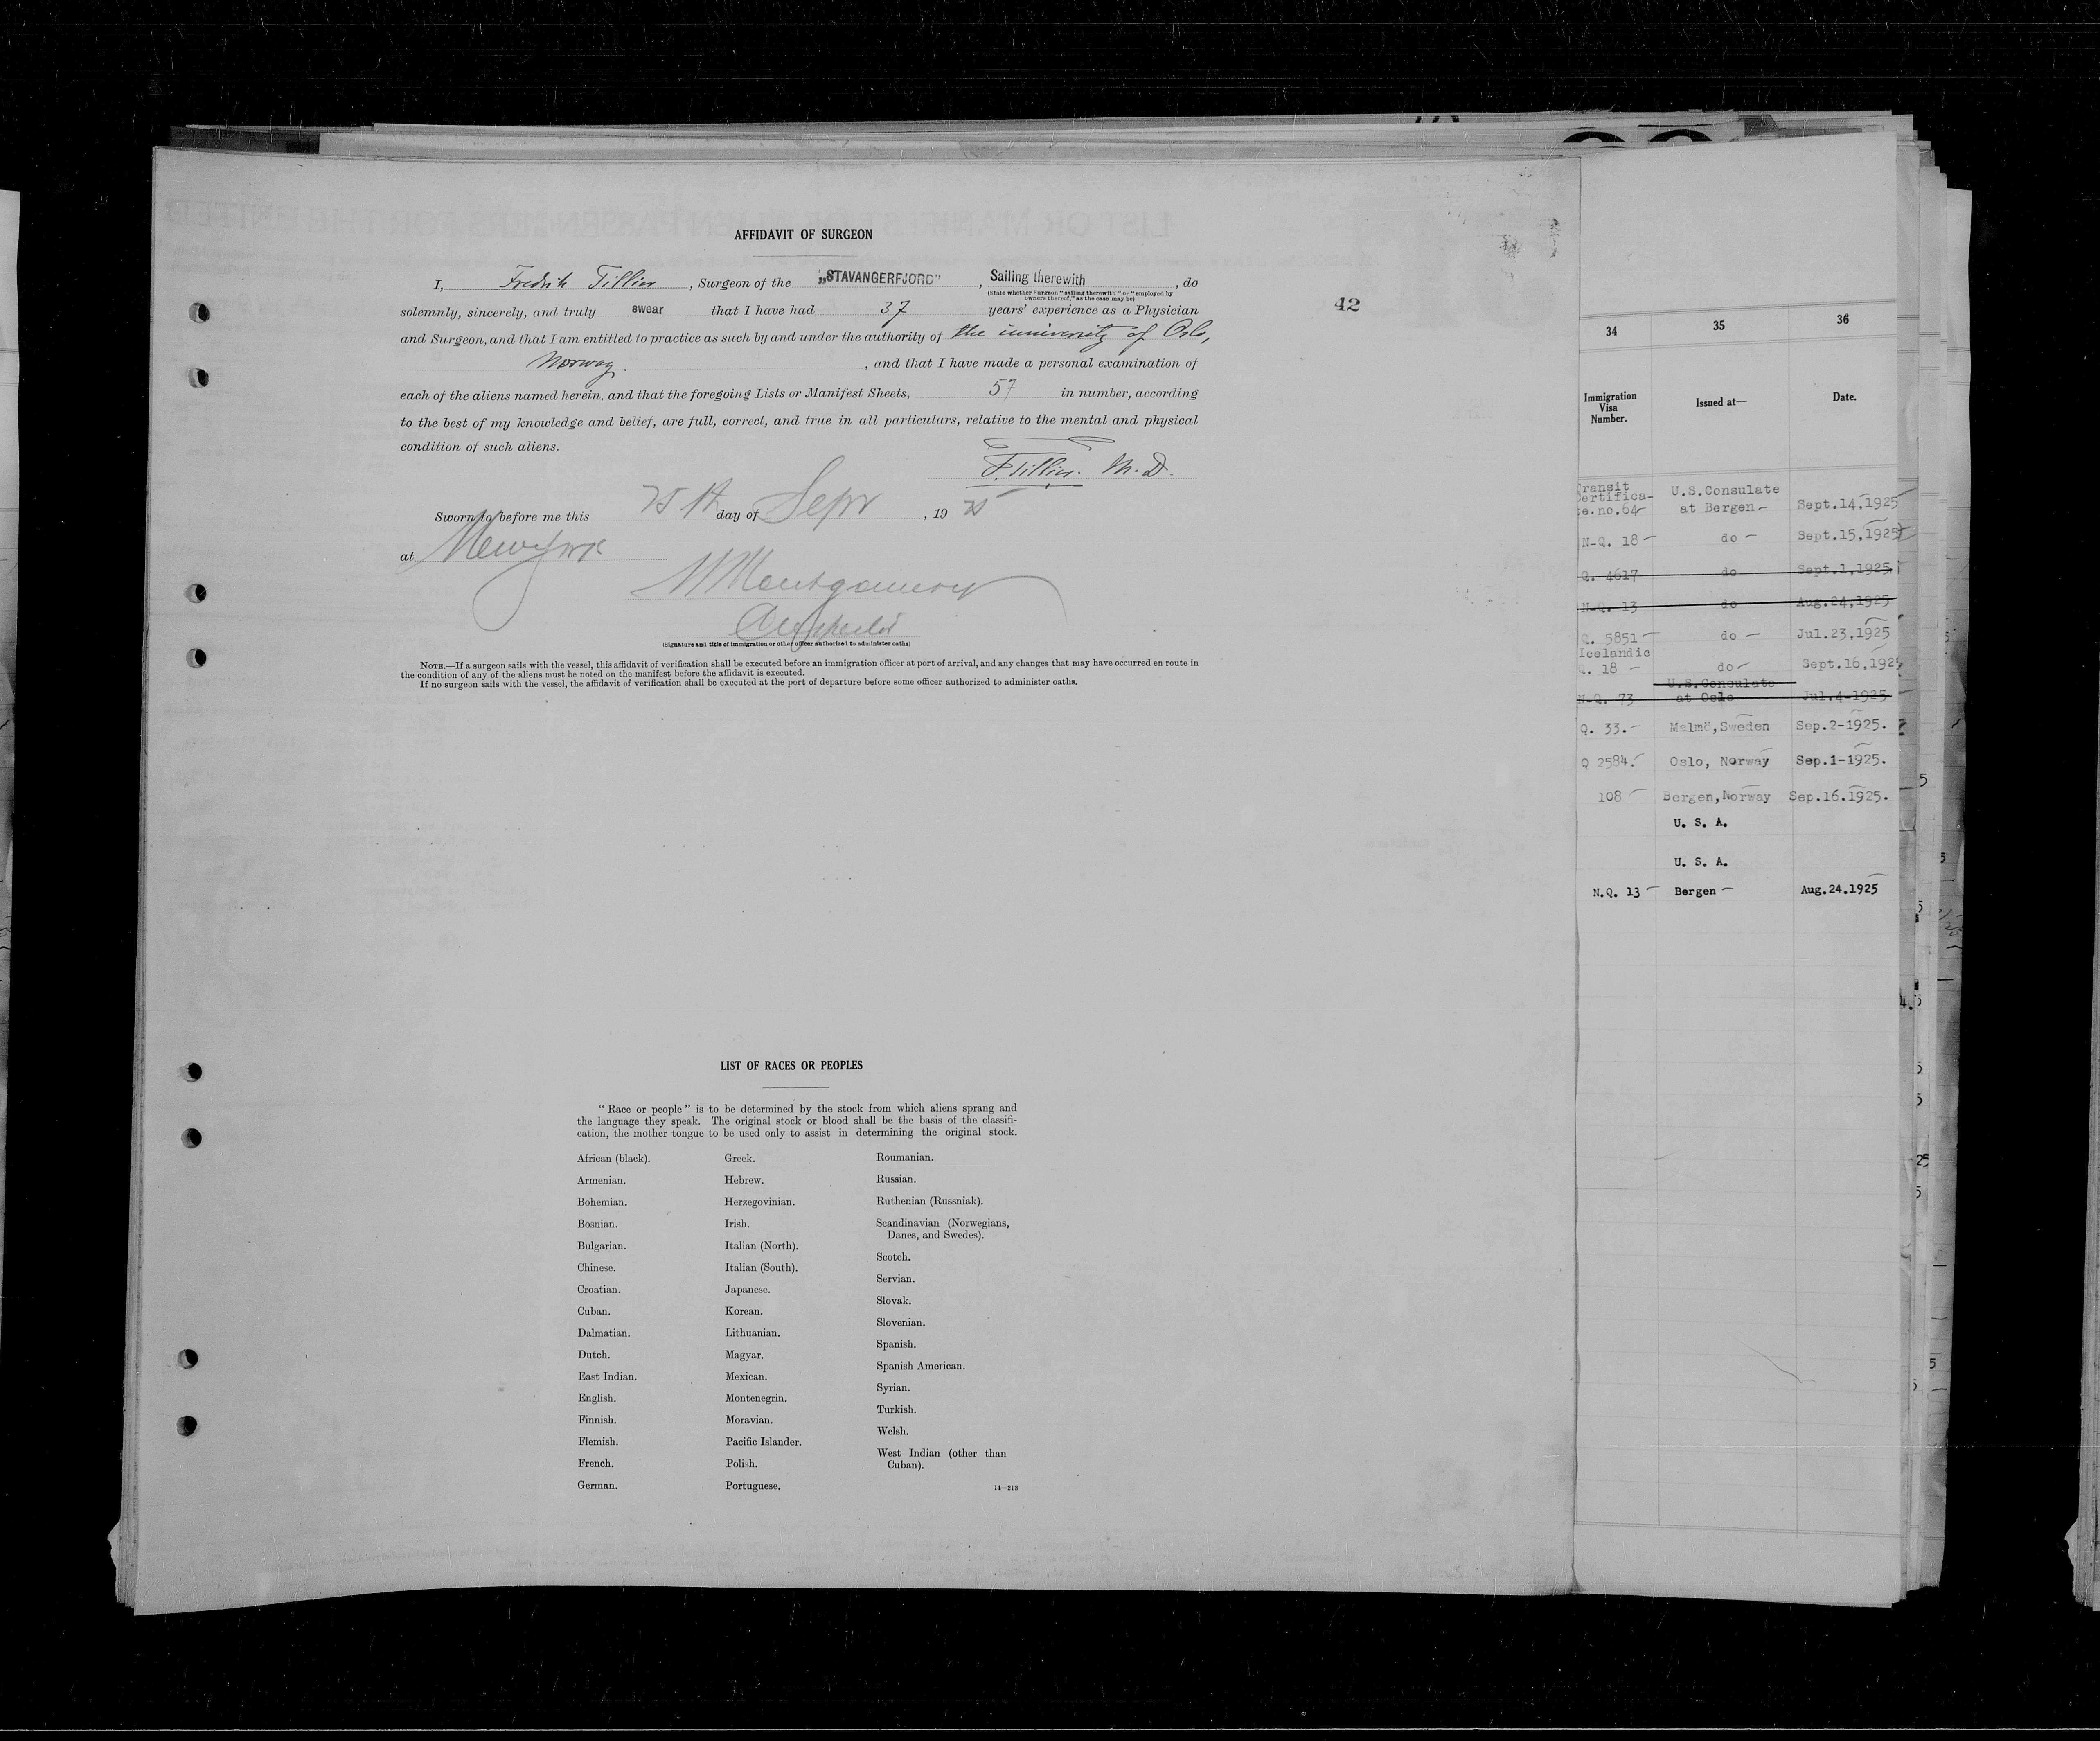 AFFIDAVIT OF SURGEON
I, Fredrik Tillier, Surgeon of the „STAVANGERFJORD", Sailing therewith, do
(State whether Surgeon "sailing therewith" or "employed by
owners thereof," as the case may be)
solemnly, sincerely, and truly swear that I have had 37 years' experience as a Physician
and Surgeon, and that I am entitled to practice as such by and under the authority of the university of Oslo,
Norway., and that I have made a personal examination of
each of the aliens named herein, and that the foregoing Lists or Manifest Sheets, 57 in number, according
to the best of my knowledge and belief, are full, correct, and true in all particulars, relative to the mental and physical
condition of such aliens.
F. Tillier. M.D.
Sworn to before me this 25th day of Sepr, 1925
at New York
Montgomery
(Signature and title of immigration or other officer authorized to administer oaths)
NOTE.—If a surgeon sails with the vessel, this affidavit of verification shall be executed before an immigration officer at port of arrival, and any changes that may have occurred en route in
the condition of any of the aliens must be noted on the manifest before the affidavit is executed.
If no surgeon sails with the vessel, the affidavit of verification shall be executed at the port of departure before some officer authorized to administer oaths.
42
LIST OF RACES OR PEOPLES
"Race or people" is to be determined by the stock from which aliens sprang and
the language they speak. The original stock or blood shall be the basis of the classifi-
cation, the mother tongue to be used only to assist in determining the original stock.
African (black).
Armenian.
Bohemian.
Bosnian.
Bulgarian.
Chinese.
Croatian.
Cuban.
Dalmatian.
Dutch.
East Indian.
English.
Finnish.
Flemish.
French.
German.
Greek.
Hebrew.
Herzegovinian.
Irish.
Italian (North).
Italian (South).
Japanese.
Korean.
Lithuanian.
Magyar.
Mexican.
Montenegrin.
Moravian.
Pacific Islander.
Polish.
Portuguese.
Roumanian.
Russian.
Ruthenian (Russniak).
Scandinavian (Norwegians,
Danes, and Swedes).
Scotch.
Servian.
Slovak.
Slovenian.
Spanish.
Spanish American.
Syrian.
Turkish.
Welsh.
West Indian (other than
Cuban).
14—213
34 35 36
Immigration
Visa
Number.
Issued at—
Date.
Transit
Certifica-
te.no.64-
U.S.Consulate
at Bergen- Sept.14,1925
N-Q. 18 - do - Sept.15,1925
Q. 4617 do Sept.1,1925
N-Q. 13 do Aug.24,1925
Q. 5851 - do - Jul.23,1925
Icelandic
Q. 18 - do - Sept.16,192
U.S.Consulate
N-Q. 73 at Oslo Jul.4-1925
Q. 33.- Malmö,Sweden Sep.2-1925.
Q 2584. Oslo, Norway Sep.1-1925.
108 - Bergen,Norway Sep.16.1925.
U. S. A.
U. S. A.
N.Q. 13 - Bergen - Aug.24.1925